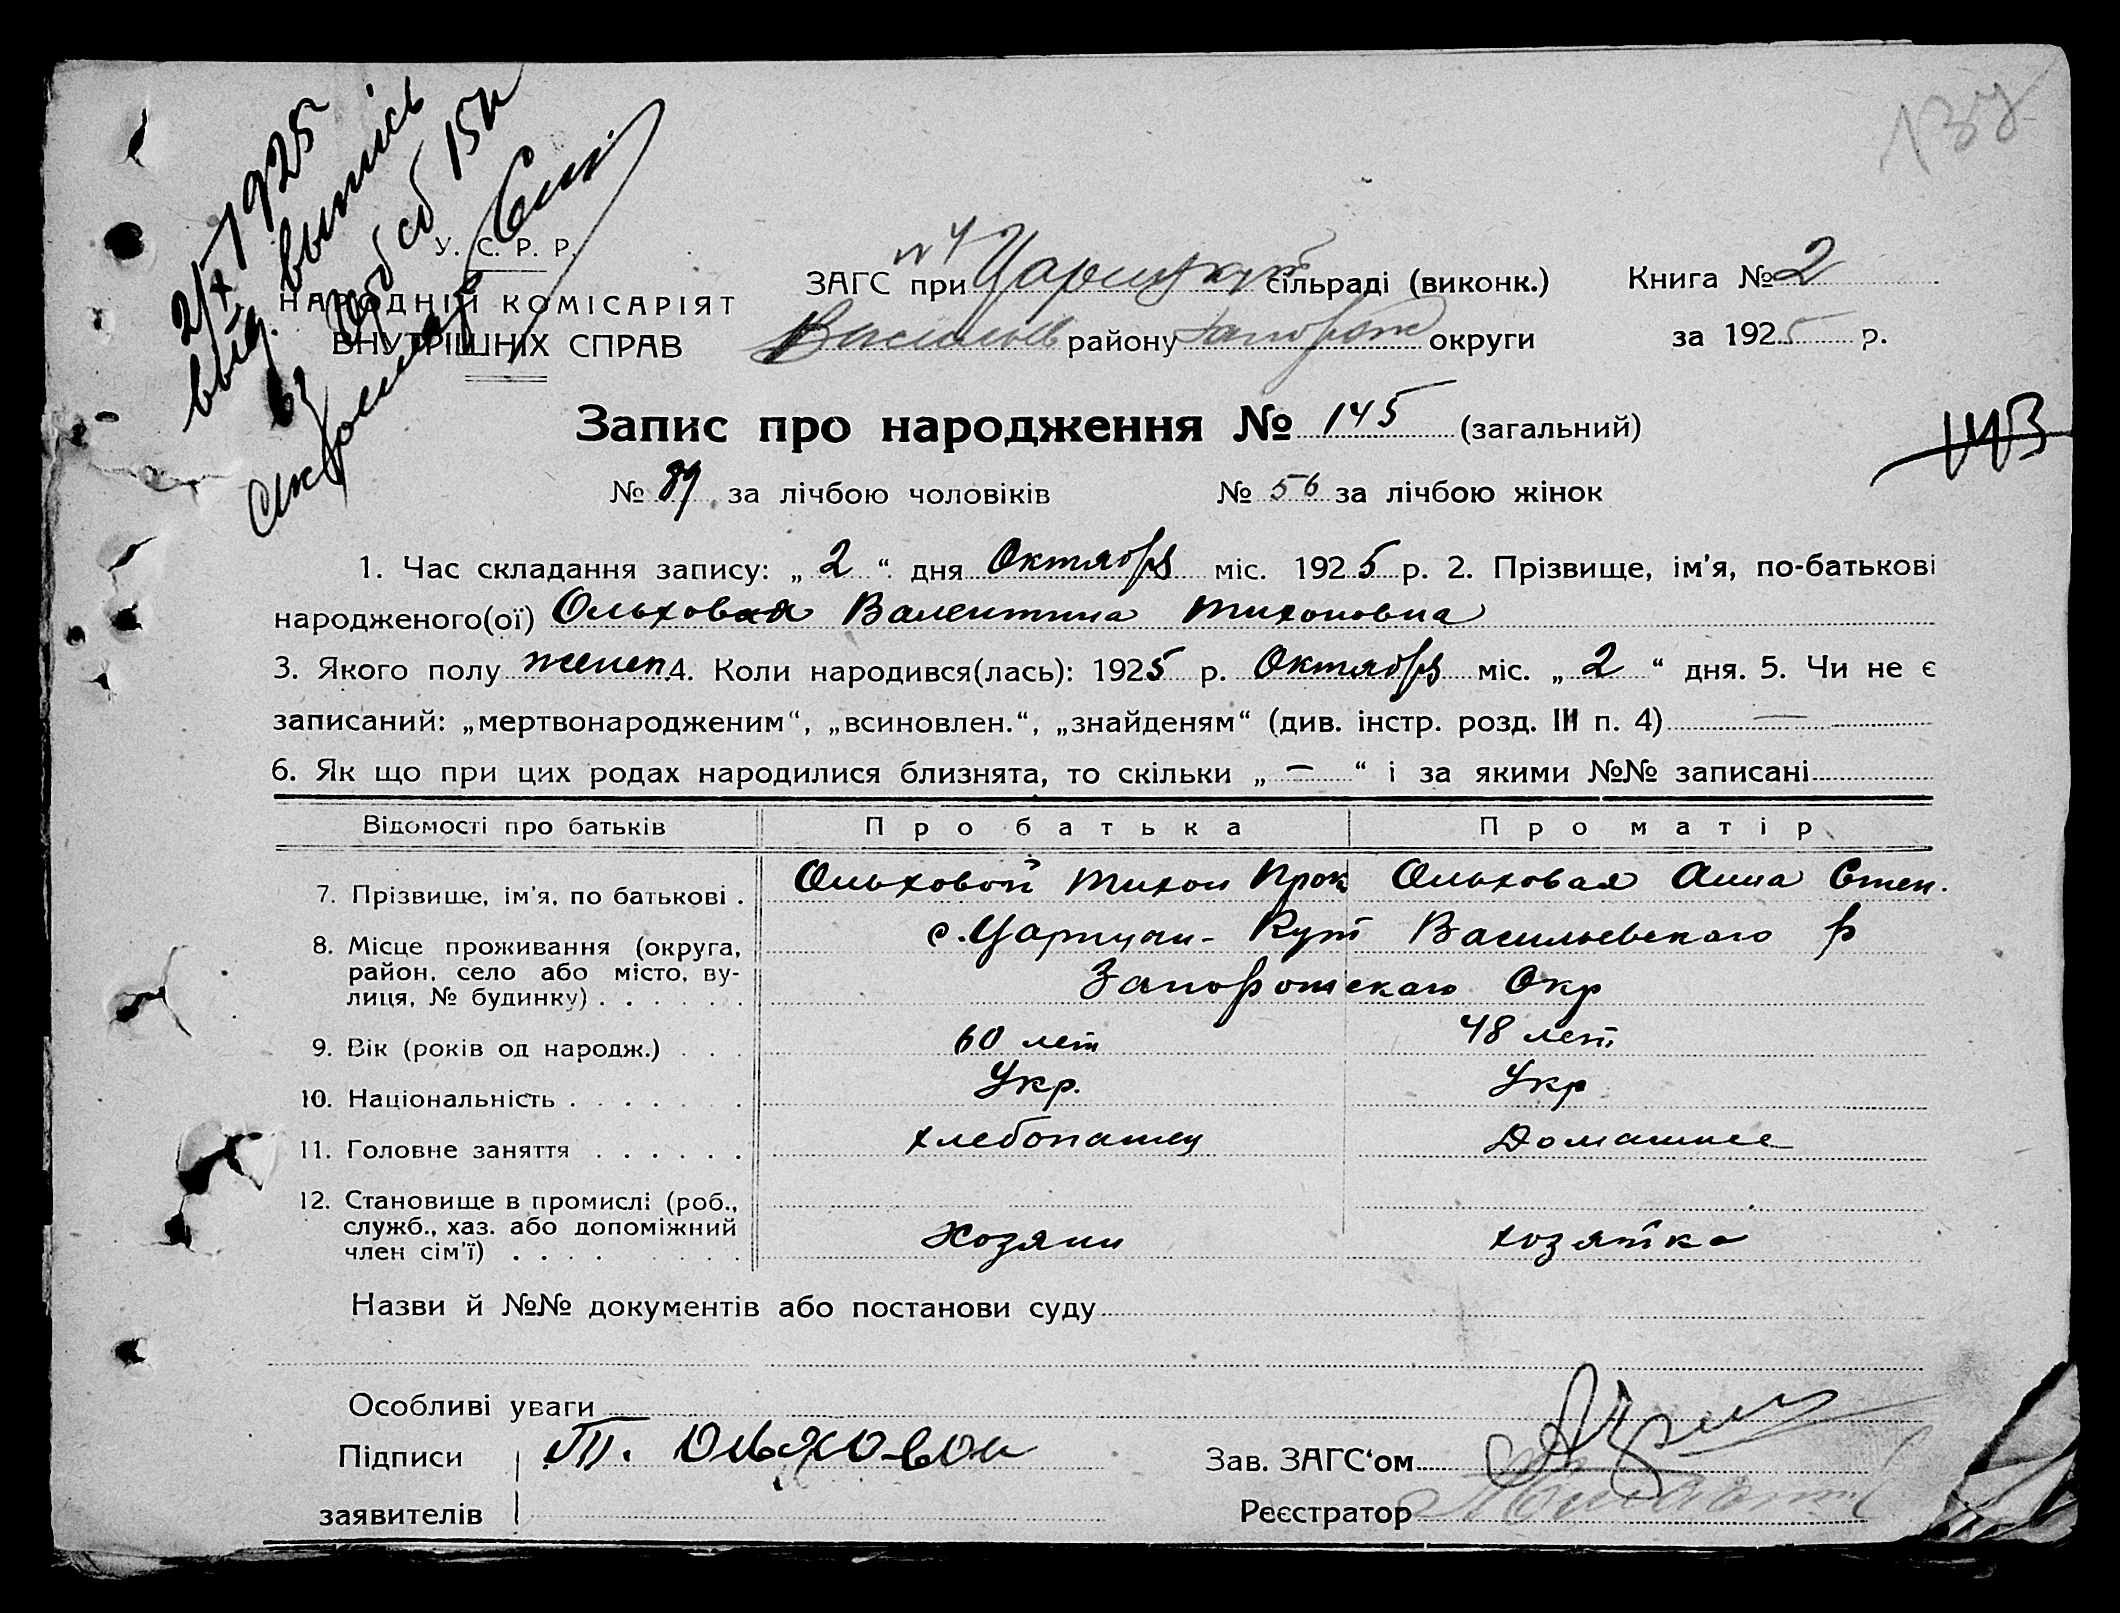 2/X 1925
выд. выпись
137
У. С. Р. Р.
НАРОДНІЙ КОМІСАРІЯТ
ВНУТРІШНІХ СПРАВ
ЗАГС при сільраді (виконк.) Книга № 2
Васильев району Запорож округи за 1925 р.
Запис про народження № 145 (загальний)
№ 89 за лічбою чоловіків № 56 за лічбою жінок
1. Час складання запису: „ 2 “ дня Октября міс. 1925 р. 2. Прізвище, ім'я, по-батькові
народженого(ої) Ольховая Валентина Тихоновна
3. Якого полу женск 4. Коли народився(лась): 1925 р. Октября міс. „ 2 “ дня. 5. Чи не є
записаний: „мертвонародженим“, „всиновлен.“, „знайденям“ (див. інстр. розд. III п. 4) —
6. Як що при цих родах народилися близнята, то скільки „ — “ і за якими №№ записані
Відомості про батьків Про батька Про матір
7. Прізвище, ім'я, по батькові . Ольховой Тихон Прок Ольховая Анна Степ.
8. Місце проживання (округа,
район, село або місто, ву-
лиця, № будинку) . . . . . .
с. Царицын-Кут Васильевского р
Запорожскаго Окр
9. Вік (років од народж.) . . . 60 лет 48 лет
10. Національність . . . . . . . Укр. Укр
11. Головне заняття . . . . . . хлебопашец Домашнее
12. Становище в промислі (роб.,
служб., хаз. або допоміжний
член сім'ї) . . . .
Хозяин хозяйка
Назви й №№ документів або постанови суду
Особливі уваги
Підписи Т. Ольховой Зав. ЗАГС'ом
заявителів Реєстратор